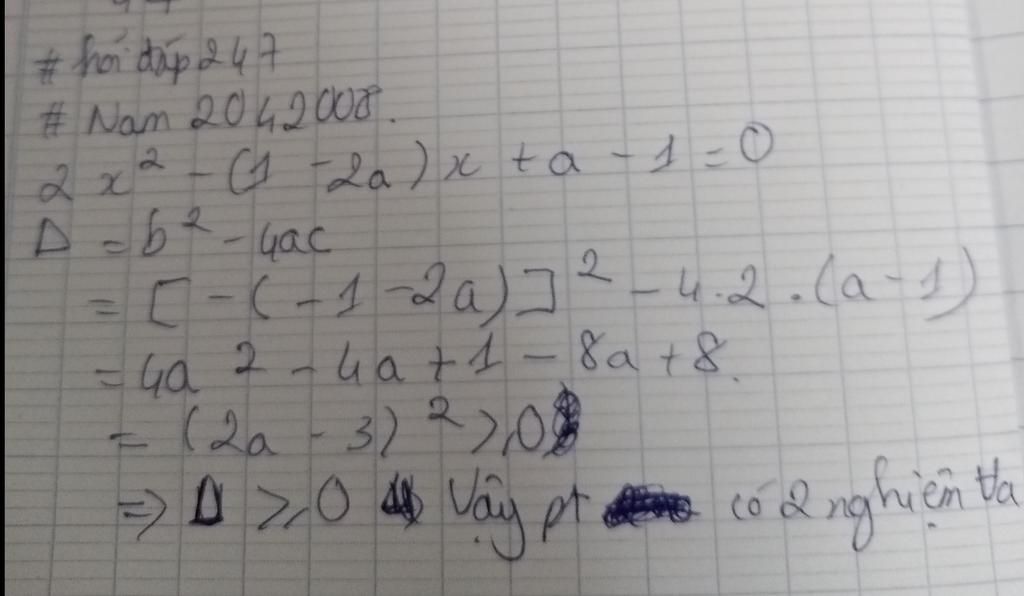 # hỏi đáp 247
# Nam 2042008.
2x² - (1 - 2a)x + a - 1 = 0
Δ = b² - 4ac
= [-(-1 - 2a)]² - 4.2.(a - 1)
= 4a² - 4a + 1 - 8a + 8.
= (2a - 3)² ≥ 0
=> Δ ≥ 0 Vậy pt có 2 nghiệm ∀a